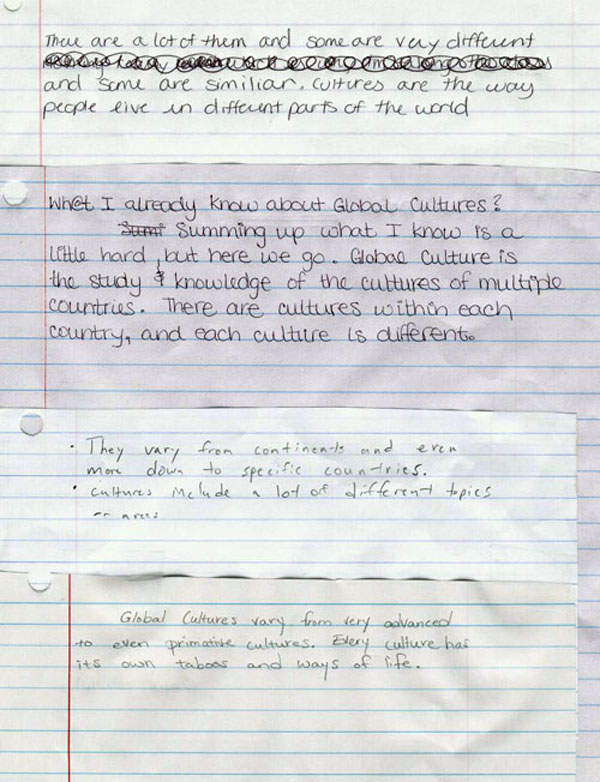 There are a lot of them and some are very different
and some are similiar. Cultures are the way
people live in different parts of the world
What I already know about Global Cultures?
Summing up what I know is a
little hard, but here we go. Global Culture is
the study & knowledge of the cultures of multiple
countries. There are cultures within each
country, and each culture is different.
• They vary from continents and even
more down to specific countries.
• Cultures include a lot of different topics
or areas
Global Cultures vary from very advanced
to even primative cultures. Every culture has
its own taboos and ways of life.